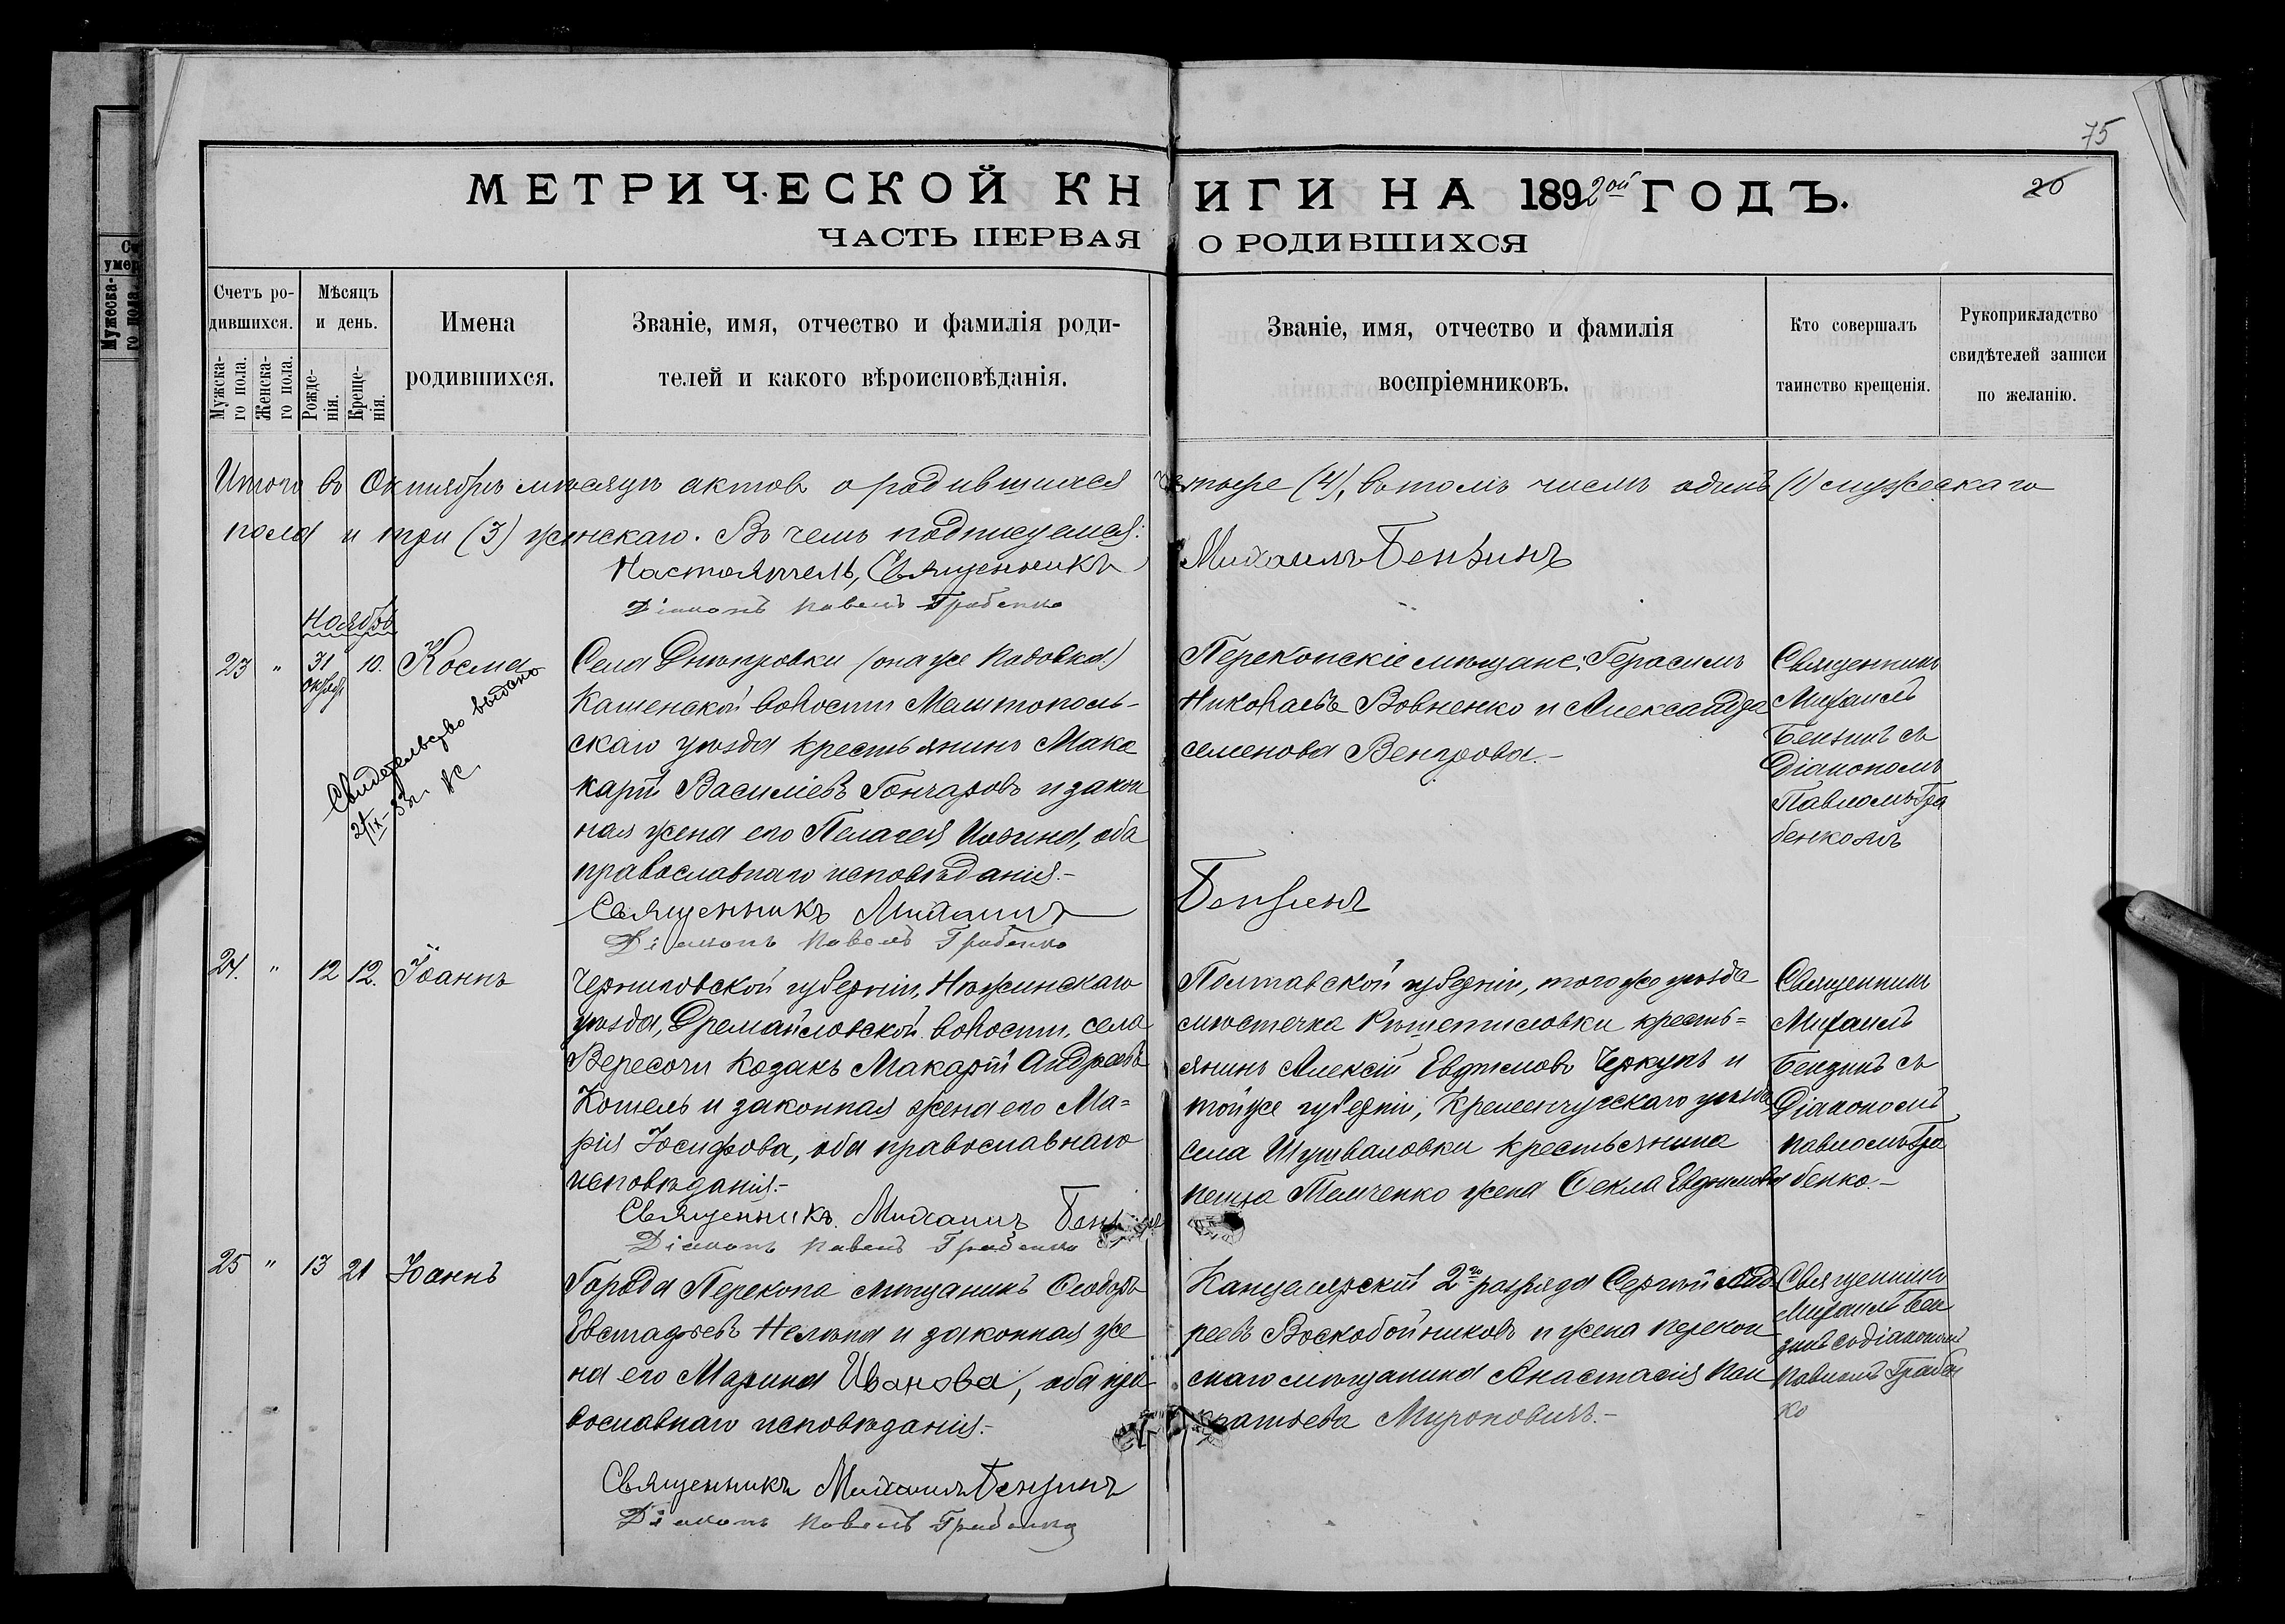 75
МЕТРИЧЕСКОЙ КНИГИ НА 1892ой ГОДЪ.
26
ЧАСТЬ ПЕРВАЯ О РОДИВШИХСЯ
Счетъ родившихся.
Мужскаго пола.
Женскаго пола.
Мѣсяцъ и день.
Рожденія.
Крещенія.
Имена родившихся.
Званіе, имя, отчество и фамилія родителей и какого вѣроисповѣданія.
Званіе, имя, отчество и фамилія воспріемниковъ.
Кто совершалъ таинство крещенія.
Рукоприкладство свидѣтелей записи по желанію.
Итого въ Октябрѣ мѣсяцѣ актовъ о родившихся четыре (4), въ томъ числѣ одинъ (1) мужескаго
пола и три (3) женскаго. Въ чемъ подписуемся:
Настоятель, Священникъ Михаилъ Бензинъ
Діаконъ Павелъ Грабенко
Ноябрь
23 " 31 окт 10. Косма
Свидетельство выдано
21/IX-53г.
Села Днѣпровки (она же Водовка)
Каменской волости Мелитополь-
скаго уѣзда крестьянинъ Мака
карій Василіевъ Гончаровъ и закон
ная жена его Пелагея, оба
православнаго исповѣданія.-
Священникъ Михаилъ Бензинъ
Діаконъ Павелъ Грабенко
Перекопскіе мѣщане: Герасимъ
Николаевъ Вовненко и Александра
Семенова Венгрова.-
Священникъ
Михаилъ
Бензинъ съ
Діакономъ
Павломъ Гра
бенкомъ
24. " 12 12. Іоаннъ
Черниговской губерніи, Нѣжинскаго
уѣзда, Дремайловской волости, села
Вересочи козакъ Макарій Андреевъ
Кошель и законная жена его Ма-
рія Іосифова, оба православнаго
исповѣданія.-
Священникъ Михаилъ Бензинъ
Діаконъ Павелъ Грабенко
Полтавской губерніи, того же уѣзда
мѣстечка Рѣшетиловки кресть=
янинъ Алексій Евфимовъ Черкунъ и
той же губерніи, Кременчугскаго уѣзда
села Шушваловки крестьянина
Темченко жена Ѳекла Евфимова
Священникъ
Михаилъ
Бензинъ съ
Діакономъ
Павломъ Гра
бенко.-
25 " 13 21 Іоаннъ
Города Перекопа мѣщанинъ Ѳеодоръ
Евстафьевъ Нелѣпа и законная же
на его Марина Иванова, оба пра
вославнаго исповѣданія.-
Священникъ Михаилъ Бензинъ
Діаконъ Павелъ Грабенко
Канцелярскій 2го разряда Сергѣй Анд
реевъ Воскобойниковъ и жена перекоп
скаго мѣщанина Анастасія Пан
кратьева Мироновичъ.-
Священникъ
Михаилъ Бен
зинъ съ діакономъ
Павломъ Грабен
ко